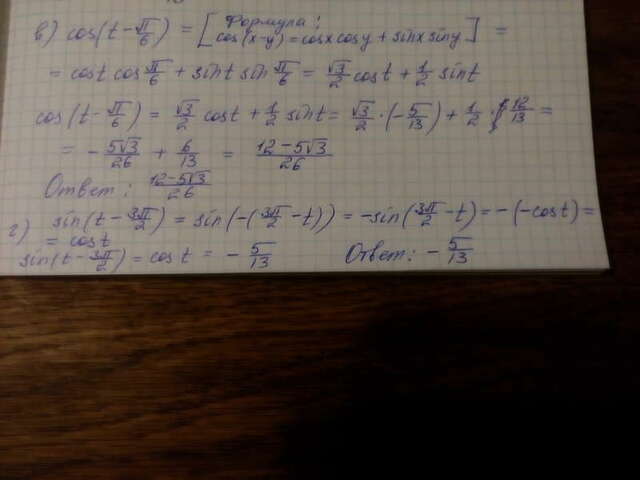 в) cos(t - π/6) = [Формула: cos(x-y) = cosx cosy + sinx siny] =
= cost cos π/6 + sint sin π/6 = √3/2 cost + 1/2 sint
cos(t - π/6) = √3/2 cost + 1/2 sint = √3/2 · (-5/13) + 1/2 · 12/13 =
= - 5√3/26 + 6/13 = 12-5√3/26
Ответ: 12-5√3/26
г) sin(t - 3π/2) = sin(-(3π/2 - t)) = -sin(3π/2 - t) = -(-cost) =
= cost
sin(t - 3π/2) = cost = - 5/13 Ответ: - 5/13